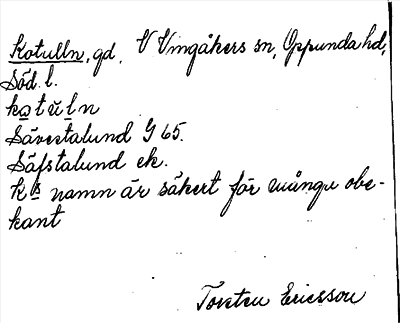 Kotulln, gd, V Vingåkers sn, Oppunda hd,
Söd. l.
kotŭln
Sävestalund G 65.
Säfstalund ek.
K:s namn är säkert för många obe-
kant
Torsten Ericsson